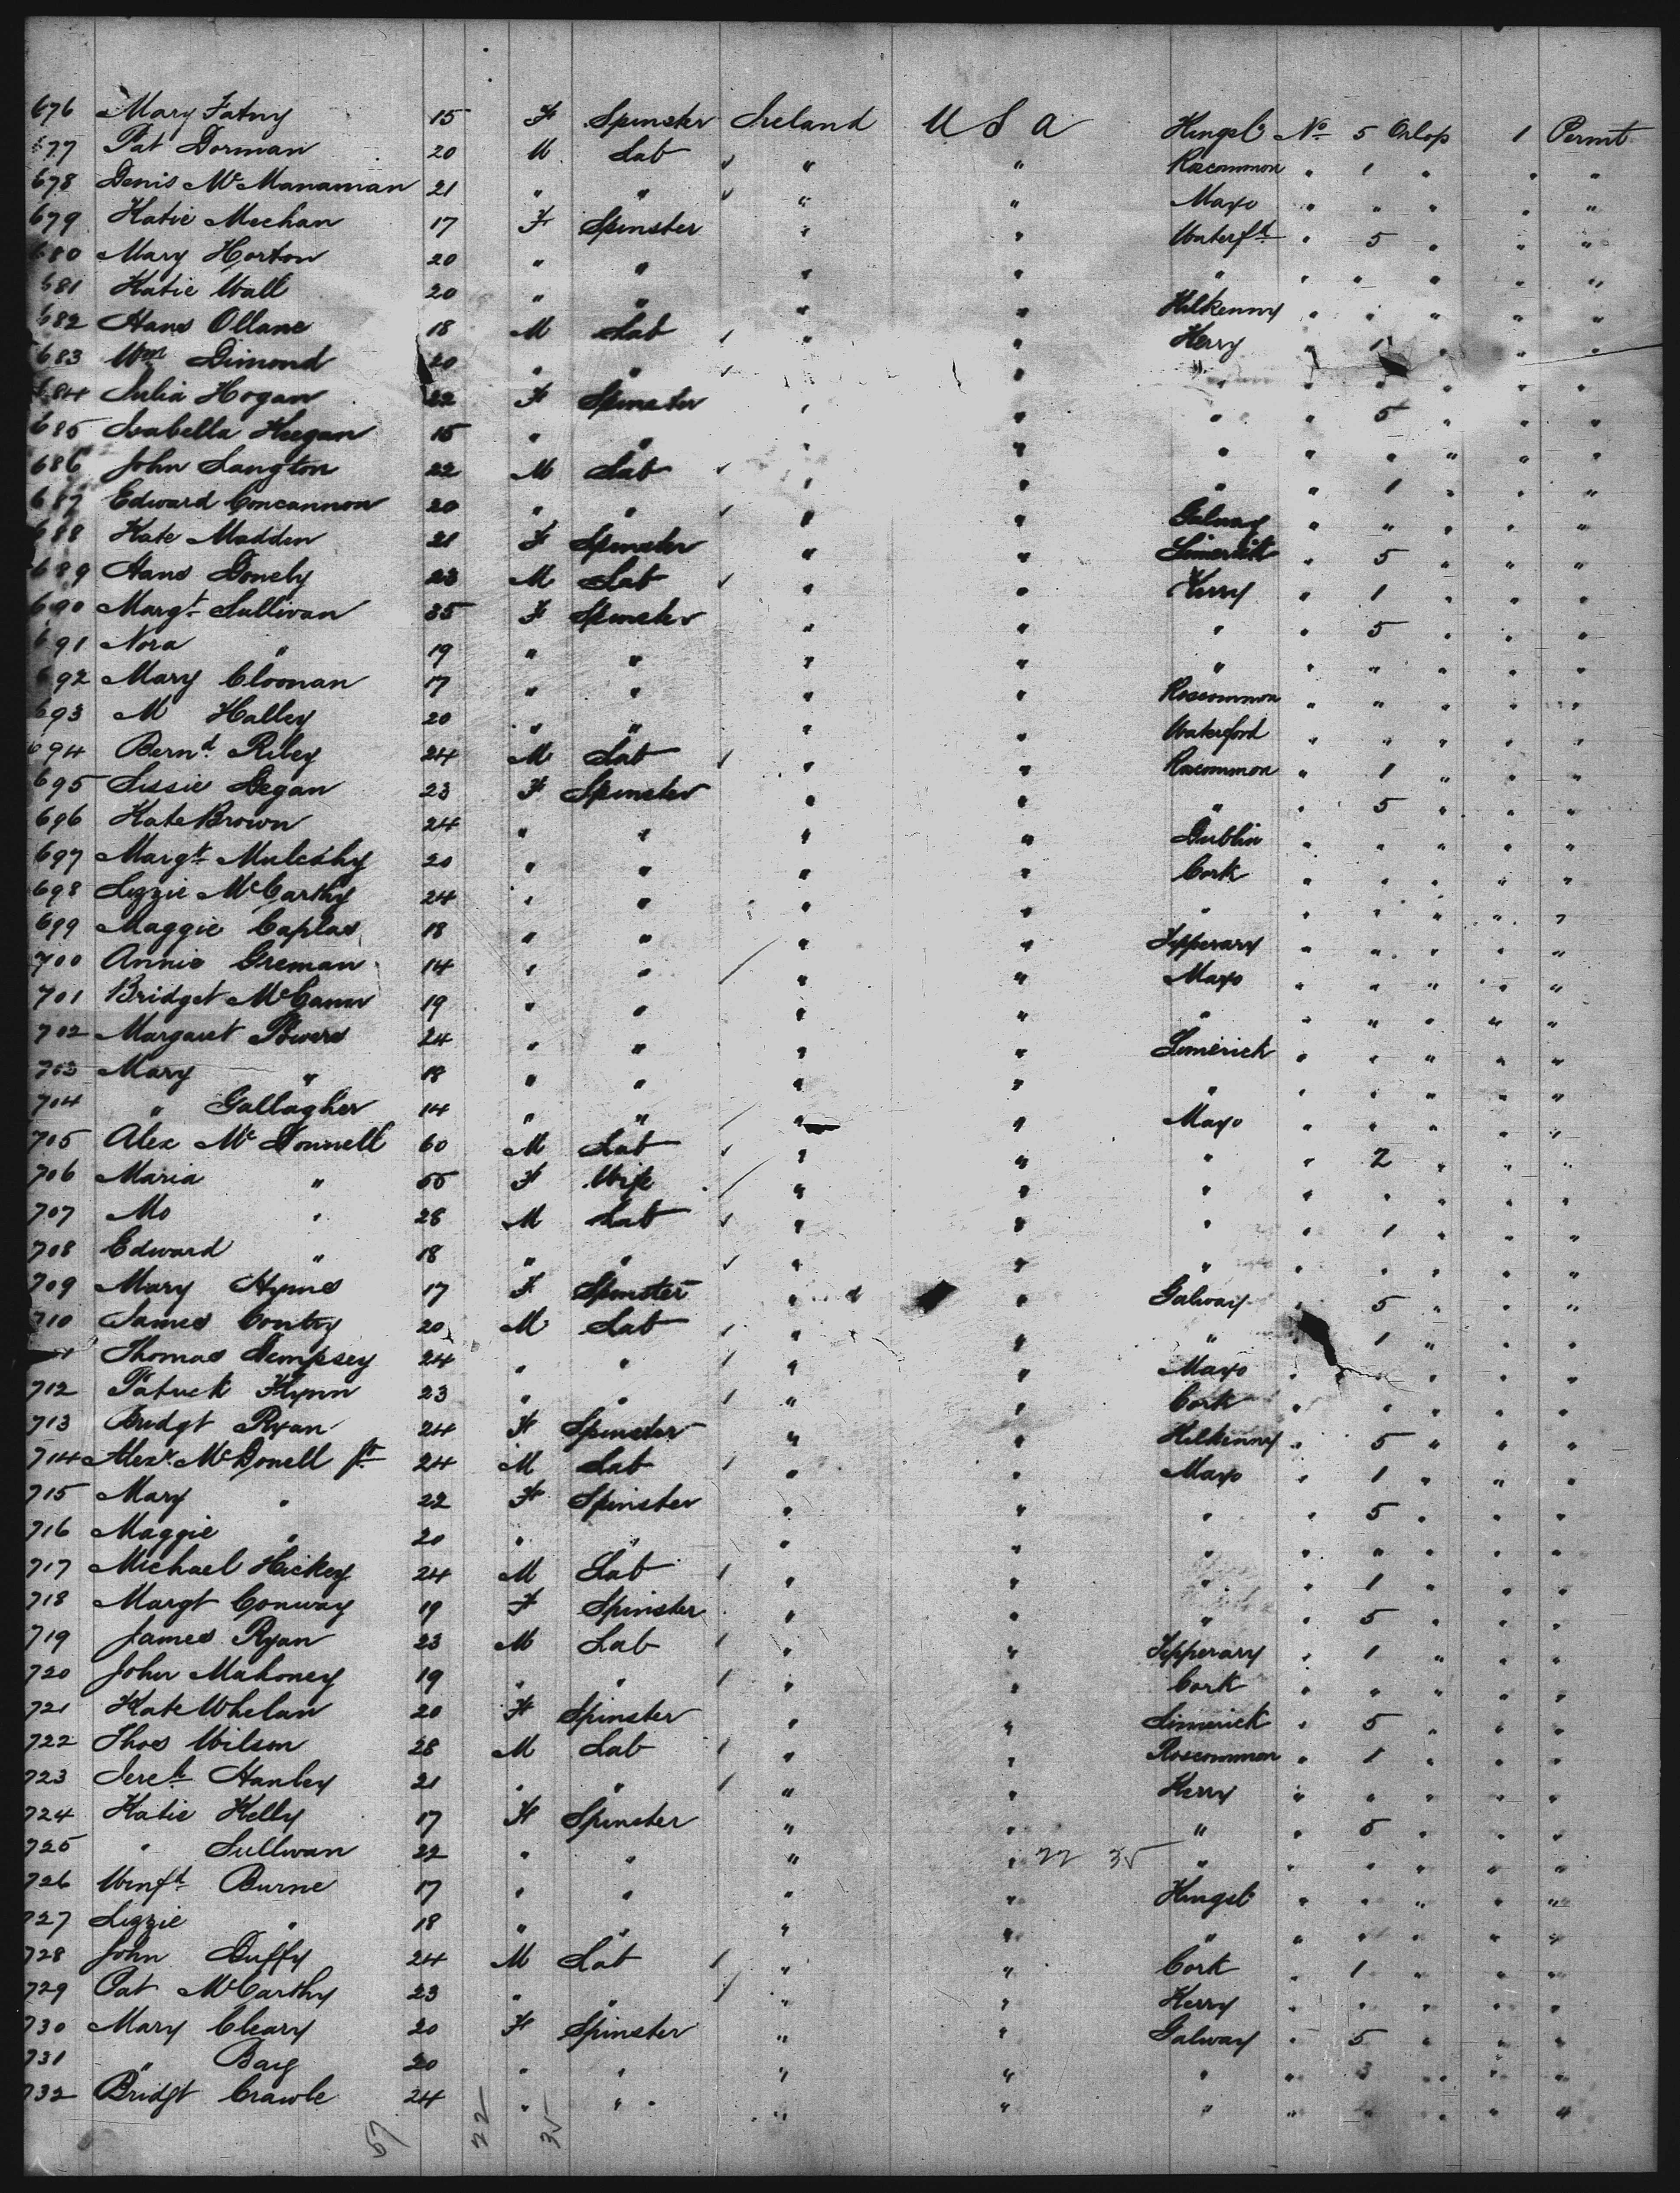 676 Mary Fatny 15 F Spinster Ireland U S A Kingsl No 5 Orlop 1 Permt
677 Pat Dorman 20 M Lab " " Roscommon " 1 " " "
678 Denis McManaman 21 " " " " Mayo " " " " "
679 Katie Meehan 17 F Spinster " " Waterfd " 5 " " "
680 Mary Horton 20 " " " " " " " " " "
681 Katie Wall 20 " " " " Kilkenny " " " " "
682 Hans Ollane 18 M Lab " " Kerry " 1 " " "
683 Wm Dimond 20 " " " " " " " " "
684 Julia Hogan 22 F Spinster " " " " 5 " " "
685 Isabella Keegan 15 " " " " " " " " " "
686 John Langton 22 M Lab " " " " 1 " " "
687 Edward Concannon 20 " " " " Galway " " " " "
688 Kate Madden 21 F Spinster " " Limerick " 5 " " "
689 Hans Donely 23 M Lab " " Kerry " 1 " " "
690 Margt Sullivan 35 F Spinster " " " " 5 " " "
691 Nora " 19 " " " " " " " " " "
692 Mary Cloonan 17 " " " " Roscommon " " " " "
693 M Halley 20 " " " " Waterford " " " " "
694 Bernd Riley 24 M Lab " " Roscommon " 1 " " "
695 Lissie Degan 23 F Spinster " " " " 5 " " "
696 Kate Brown 24 " " " " Dublin " " " " "
697 Margt Mulcahy 20 " " " " Cork " " " " "
698 Lizzie McCarthy 24 " " " " " " " " " "
699 Maggie Caplas 18 " " " " Tipperary " " " " "
700 Annie Greman 14 " " " " Mayo " " " " "
701 Bridget McCann 19 " " " " " " " " " "
702 Margaret Powers 24 " " " " Limerick " " " " "
703 Mary " 18 " " " " " " " " " "
704 " Gallagher 14 " " " " Mayo " " " " "
705 Alex McDonnell 60 M Lab " " " " 2 " " "
706 Maria " 55 F Wife " " " " " " " "
707 Mo " 28 M Lab " " " " 1 " " "
708 Edward " 18 " " " " " " " " " "
709 Mary Hynes 17 F Spinster " " Galway " 5 " " "
710 James Contoy 20 M Lab " " " 1 " " "
Thomas Dempsey 24 " " " " Mayo " " " " "
712 Patrick Flynn 23 " " " " Cork " " " " "
713 Bridgt Ryan 24 F Spinster " " Kilkenny " 5 " " "
714 Alexr McDonell Jr 24 M Lab " " Mayo " 1 " " "
715 Mary " 22 F Spinster " " " " 5 " " "
716 Maggie " 20 " " " " " " " " " "
717 Michael Hickey 24 M Lab " " " " 1 " " "
718 Margt Conway 19 F Spinster " " " " 5 " " "
719 James Ryan 23 M Lab " " Tipperary " 1 " " "
720 John Mahoney 19 " " " " Cork " " " " "
721 Kate Whelan 20 F Spinster " " Limerick " 5 " " "
722 Thos Wilson 28 M Lab " " Roscommon " 1 " " "
723 Jereh Hanley 21 " " " " Kerry " " " " "
724 Katie Kelly 17 F Spinster " " " " 5 " " "
725 " Sullivan 22 " " " " 22 35 " " " " " "
726 Winfd Burne 17 " " " " Kingsl " " " " "
727 Lizzie " 18 " " " " " " " " " "
728 John Duffy 24 M Lab " " Cork " 1 " " "
729 Pat McCarthy 23 " " " " Kerry " " " " "
730 Mary Cleary 20 F Spinster " " Galway " 5 " " "
731 " Bary 20 " " " " " " 3 " " "
732 Bridgt Crawle 24 " " " " " " " " "
57 22 35